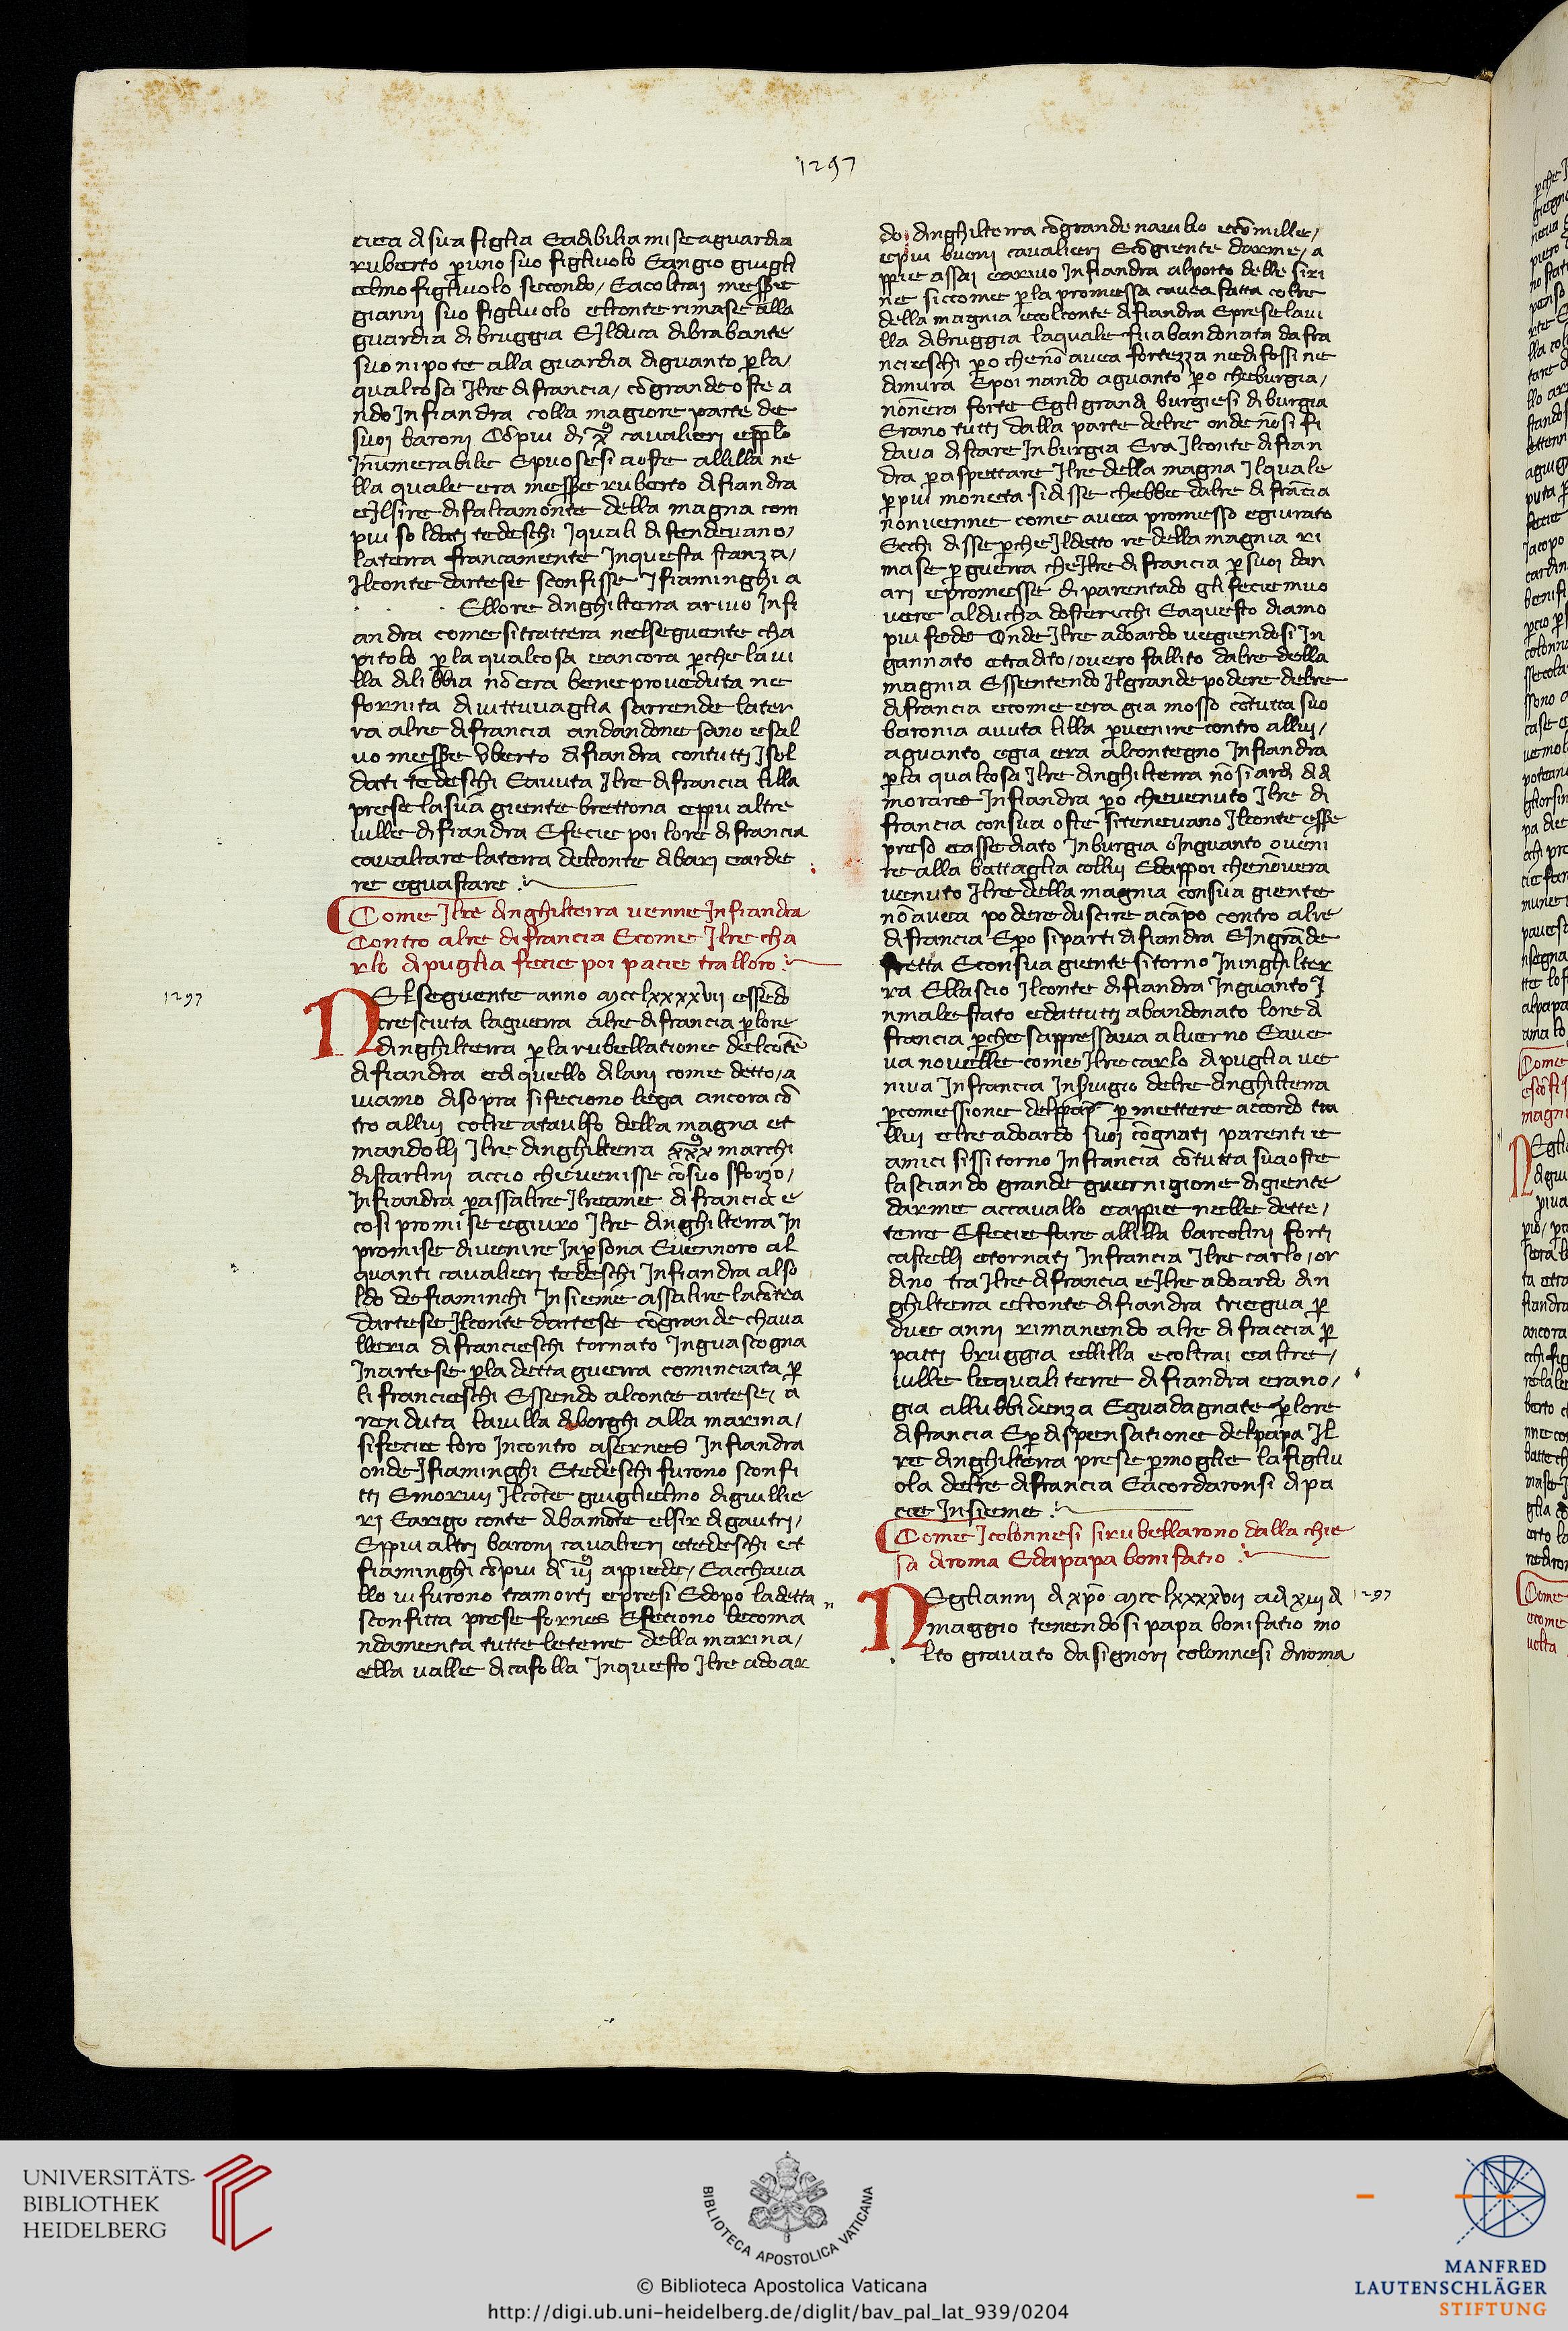 1297
cieta di sua figlia Eadibilia mise aguardia
ruberto p̱uno suo figliuolo Eangio guigli
elmo figliuolo secondo / Eacoltrai messe
gianni suo figliuolo elconte rimase alla
guardia di bruggia EJlduca dibrabante
suo nipote alla guardia diguanto p̱la /
qualcosa Jlre difrancia / cōgrande oste a
ndo Jnfiandra colla magiore parte de
suoi baroni Cōpiu di x̄ cavalieri epp̱lo
Jnumerabile Epuosesi aoste allilla ne
lla quale era messe ruberto difiandra
eJlsire difaltamonte della magna com
piu soldati tedeschi Jquali difendevano /
laterra francamente Jnquesta stanza /
Jlconte dartese sconfisse Jfiaminghi a
Ellore dinghilterra arivo Jnfi
andra come sitrattera nelseguente cha
pitolo p̱la qualcosa eancora p̱che lavi
lla dilibbia nōera bene proveduta ne
fornita divittuvaglia sarrende later
ra alre difrancia andandone sano esal
vo messe Uberto difiandra contutti Jsol
dati tedeschi Eavuta Jlre difrancia lilla
prese lasua giente brettona eppiu altre
ville difiandra Efecie poi lore difrancia
cavalcare laterra delconte dibari earde
re eguastare
Come Jlre dinghilterra venne Jnfiandra
Contro alre difrancia Ecome Jlre cha
rlo dipuglia fecie poi pacie tralloro
1297
NElseguente anno mcclxxxxvii essēdo
cresciuta laguerra alre difrancia p̱lore
dinghilterra p̱larubellatione delcōte
difiandra ediquello dilani come detto / a
viamo disopra sifeciono lega ancora cō
tro allui colre ataulfo della magna et
mandolli Jlre dinghilterra xxx marchi
distarlini accio chevenisse cōsuo sforzo /
Jnfiandra passalire Jlreame difrancia e
cosi promise egiuro Jlre dinghilterra Jn
promise divenire Jnp̱sona Evennoro al
quanti cavalieri tedeschi Jnfiandra also
ldo defiaminchi Jnsieme assalire lacōtea
dartese Jlconte dartese cōgrande chava
lleria difrancieschi tornato Jnguascogna
Jnartese p̱la detta guerra cominciata p̱
li francieschi Essendo alconte artese / a
renduta lavilla diborghi alla marina /
sifecie loro Jncontro aserneS Jnfiandra
onde Jfiaminghi Etedeschi furono sconfi
tti Emoruvi Jlcōte guiglielmo diguillie
ri Earigo conte dibamōte elsir digautri /
Eppiu altri baroni cavalieri etedeschi et
fiaminghi cōpiu di iii appiede / Eacchava
llo vi furono tramorti epresi Edopo ladetta
sconfitta prese fornes Efeciono lecoma
ndamenta tutte leterre della marina /
ella valle dicasolla Jnquesto Jlre adoar
do dinghilterra cōgrande navilio ecōmille /
epiu buoni cavalieri Ecōgiente darme / a
ppie assai earivo Jnfiandra alporto delle siri
ne siccome p̱la promessa cavea fatta colre
della magnia ecolconte difiandra Eprese lavi
lla dibruggia laquale fuabandonata dafra
ncieschi p̱o chenō avea fortezza nedifossi ne
dimura Epoi nando aguanto p̱o cheburgia /
nōnera forte Egli grandi burgiesi diburgia
Erano tutti dalla parte delre onde nōsifi
dava distare Jnburgia Era Jlconte difian
dra p̱aspettare Jlre della magna Jlquale
p̱piu moneta sidisse chebbe dalre difrancia
nonvenne come avea promesso egiurato
Ecchi disse p̱che Jldetto re della magnia ri
mase p̱guerra cheJlre difrancia p̱suoi dan
ari epromesse diparentado gli fecie muo
vere alducha dosterichi Eaquesto diamo
piu fede Onde Jlre adoardo vegiendosi Jn
gannato etradito / overo fallito dalre della
magnia Essentendo Jlgrande podere delre
difrancia ecome era gia mosso cōtutta suo
baronia avuta lilla p̱venire contro allui /
aguanto egia era alcontegno Jnfiandra
p̱la qualcosa Jlre dinghilterra nōsiardi didi
morare Jnfiandra p̱o chevenuto Jlre di
francia consua oste sitenevano Jlconte esse
preso eassediato Jnburgia oJnguanto oveni
re alla battaglia collui Edappoi chenōvera
venuto Jlre della magnia consua giente
nōavea podere duscire acāpo contro alre
difrancia Ep̱o siparti difiandra EJngrāde
fretta Econsua giente sitorno Jninghilter
ra Ellascio Jlconte difiandra Jnguanto J
nmale stato edattutti abandonato lore di
francia p̱che sappressava alverno Eave
va novelle come Jlre carlo dipuglia ve
niva Jnfrancia Jnservigio delre dinghilterra
p̱comessione delpapa p̱mettere accordo tra
llui elre adoardo suoi cōgnati parenti e
amici sissi torno Jnfrancia cōtutta suaoste
lasciando grande guernigione digiente
darme accavallo eappie nelle dette /
terre Efecie fare allilla barcolini forti
castelli etornati Jnfrancia Jlre carlo / or
dino tra Jlre difrancia eJlre adoardo din
ghilterra elconte difiandra triegua p̱
due anni rimanendo alre difraccia p̱
patti bruggia ellilla ecoltrai ealtre /
ville lequali terre difiandra erano /
gia allubbidenza Eguadagnate p̱lore
difrancia Ep̱ dispensatione delpapa Jl
re dinghilterra prese p̱moglie lafigliu
ola delre difrancia Eacordaronsi dipa
cie Jnsieme
Come Jcolonnesi sirubellarono dalla chie
sa diroma Edapapa bonifatio
NEglianni di xp̄o mcclxxxxvii adi xiii di
1297
maggio tenendosi papa bonifatio mo
lto gravato dasignori colonnesi diroma
UNIVERSITÄTS-
BIBLIOTHEK
HEIDELBERG
BIBLIOTECA APOSTOLICA VATICANA
© Biblioteca Apostolica Vaticana
http://digi.ub.uni-heidelberg.de/diglit/bav_pal_lat_939/0204
MANFRED
LAUTENSCHLÄGER
STIFTUNG